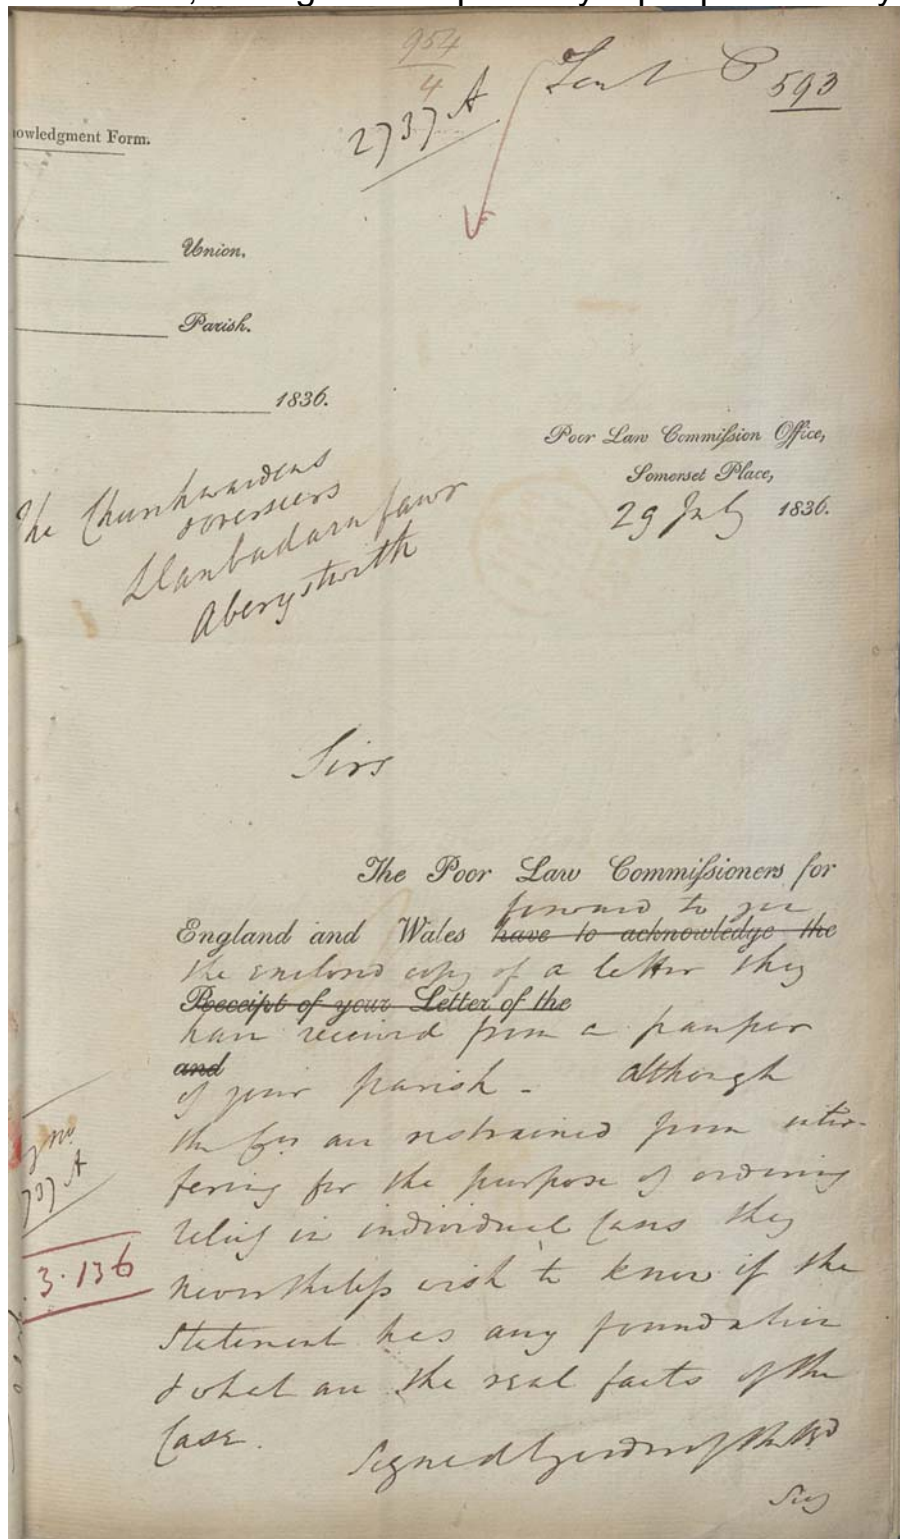 954
4
2737 A
Sent
593
owledgment Form.
Union.
Parish.
1836.
Poor Law Commission Office,
Somerset Place,
29 July 1836.
The Churchwardens
& overseers
Llanbadarn fawr
Aberystwith
Sirs
The Poor Law Commissioners for
forward to you
England and Wales have to acknowledge the
the enclosed copy of a letter they
Receipt of your Letter of the
have received from a pauper
and
of your parish - although
the Com are restrained from inter-
fering for the purpose of ordering
relief in individual cases they
nevertheless wish to know if the
Statement has any foundation
& what are the real facts of the
Case.
737 A
3.136
Signed by order of the Bd